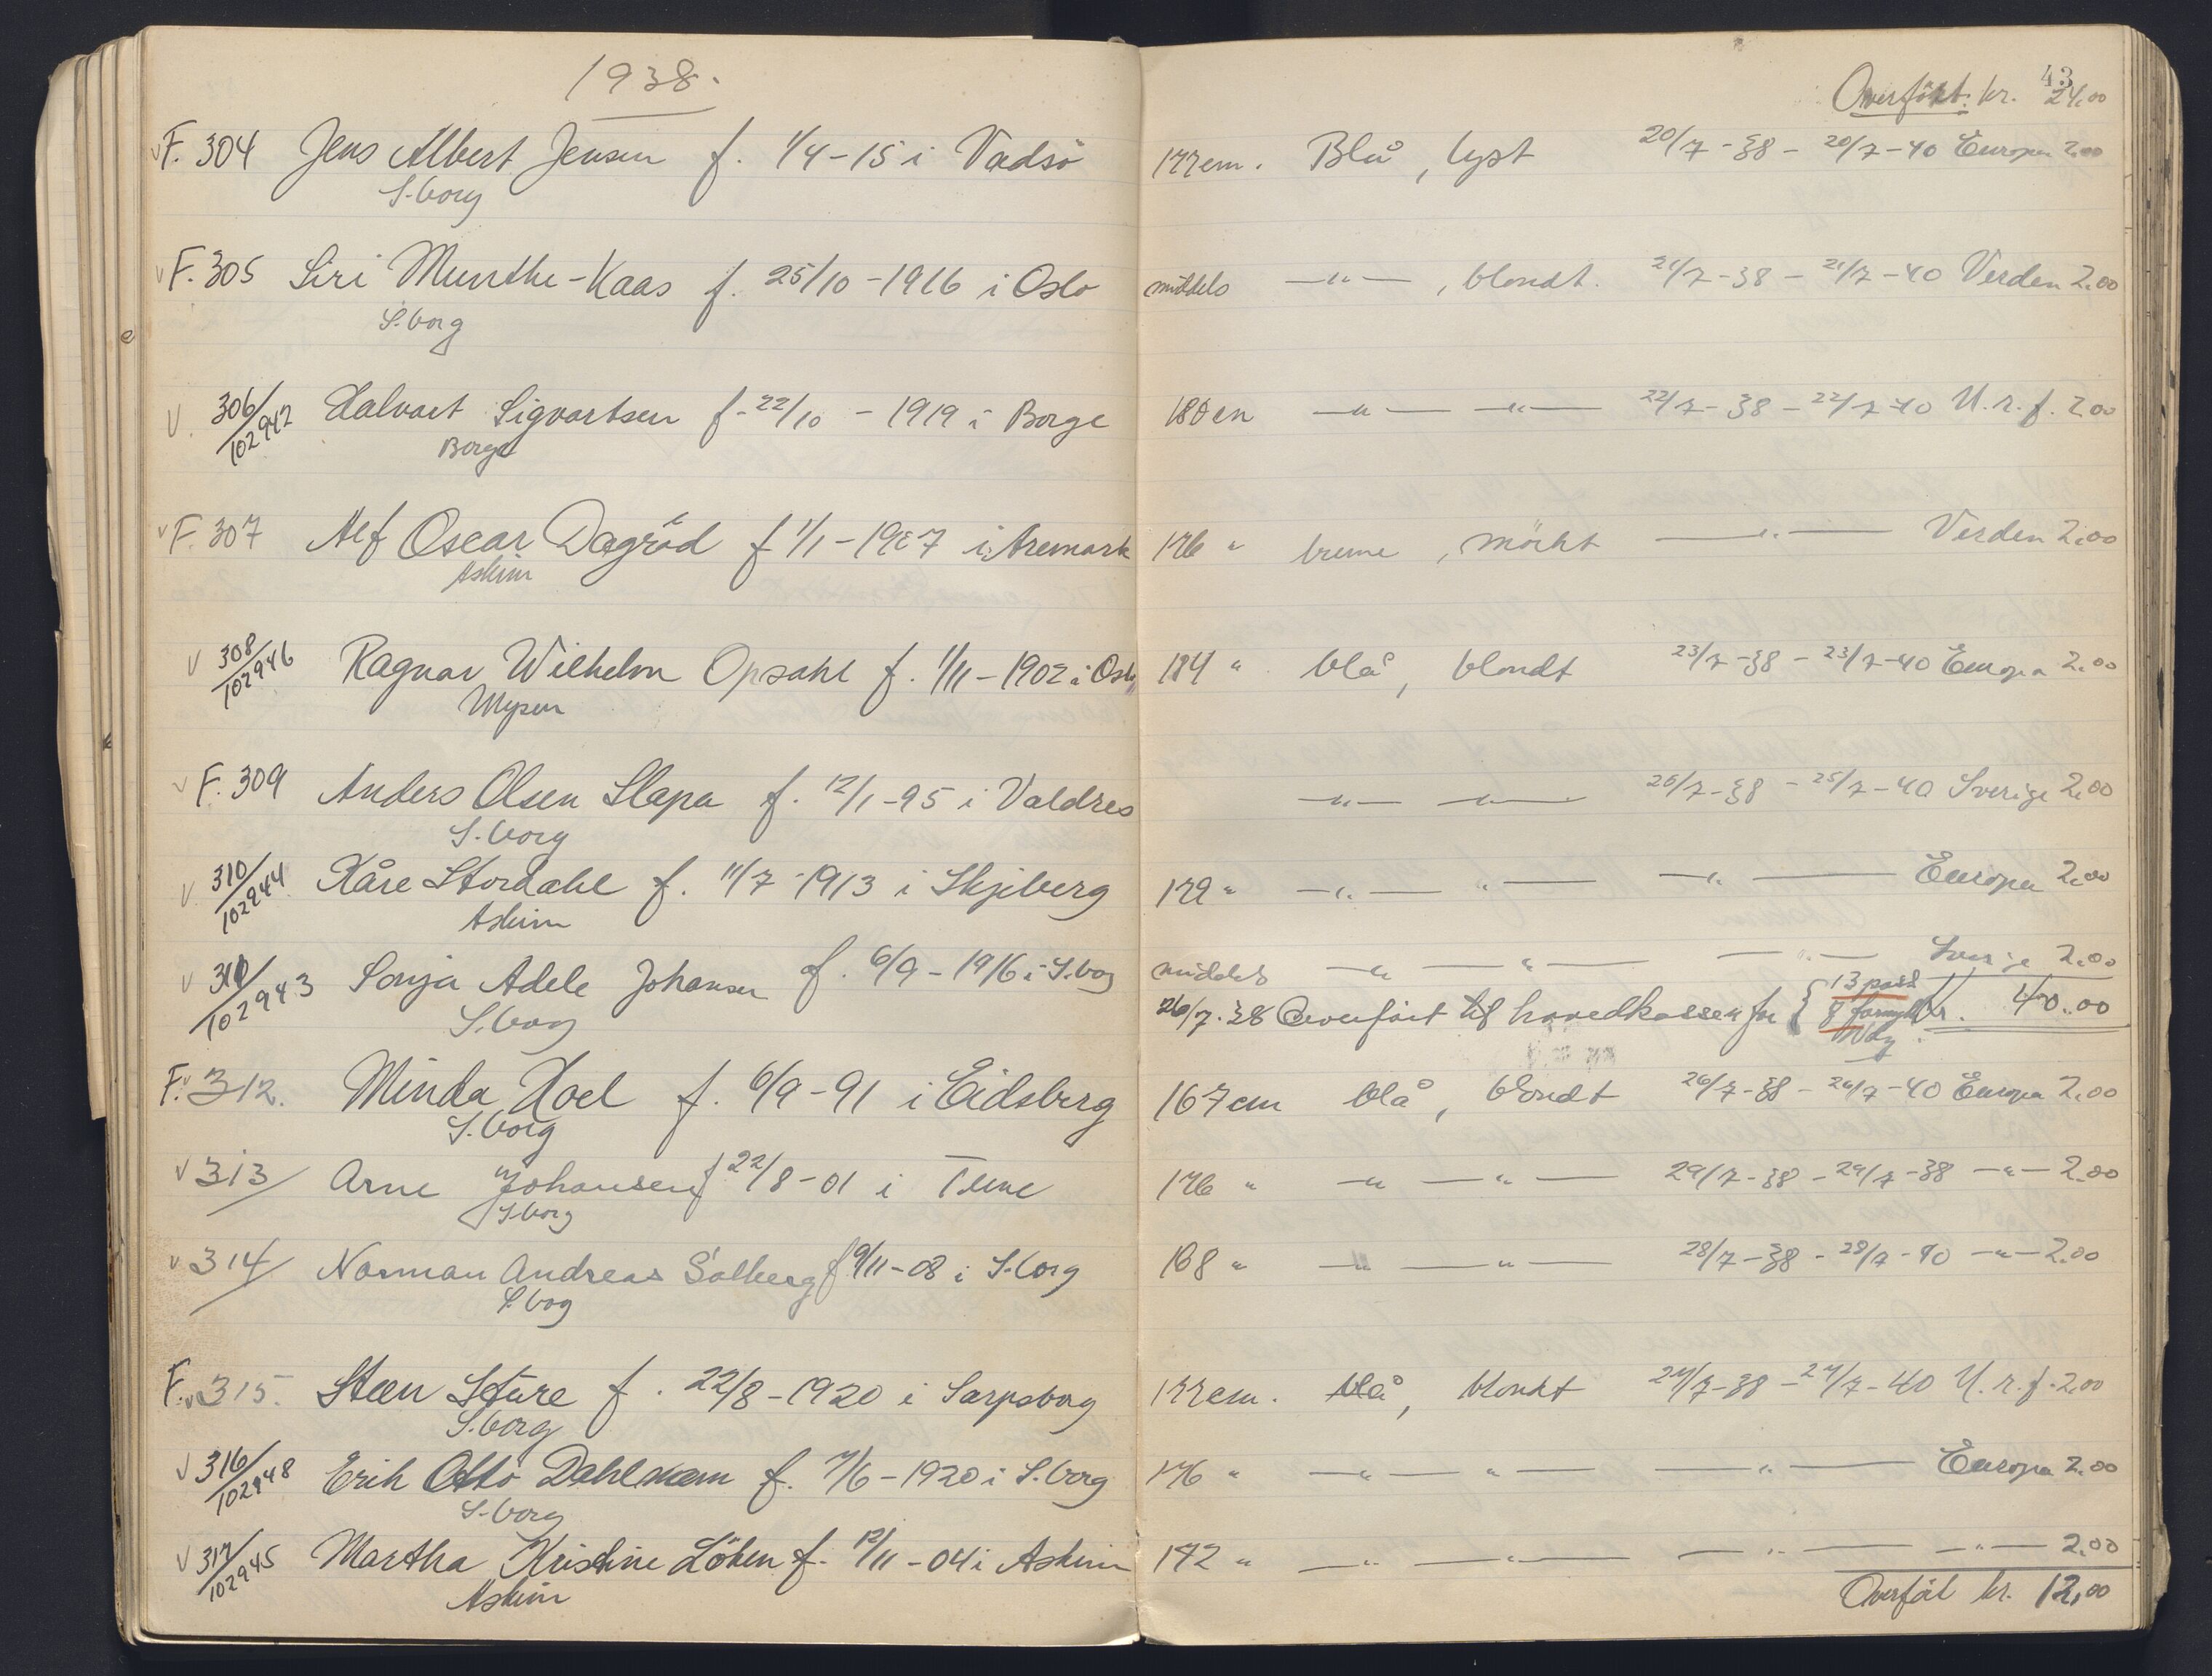 1938.
43
Overført: kr. 24,00
F. 304 Jens Albert Jensen f. 1/4-15 i Vadsö 177 cm. Blå, lyst 20/7-38 - 20/7-40 Europa 2,00
S.borg
F. 305 Siri Munthe-Kaas f. 25/10-1916 i Oslo middels —"—, blondt. 21/7-38 - 21/7-40 Verden 2,00
S.borg
306/102942 Halvart Sigvartsen f. 22/10 - 1919 i Borge 180 cm —"— —"— 22/7-38 - 22/7-40 U.r.f. 2,00
Borge
F. 307 Alf Oscar Dagröd f 1/1-1907 i Aremark 176 " brune, mörkt —"— Verden 2,00
Askim
308/102946 Ragnar Wilhelm Opsahl f. 1/11-1902 i Oslo 184 " blå, blondt 23/7-38 - 23/7-40 Europa 2,00
Mysen
F. 309 Anders Olsen Slapa f. 12/1-95 i Valdres —"— —"— 25/7-38 - 25/7-40 Sverige 2,00
S.borg
310/102944 Kåre Stordahl f. 11/7-1913 i Skjeberg 179 " —"— " — —"— Europa 2,00
Askim
311/102943 Sonja Adele Johansen f. 6/9-1916 i S.borg middels —"— " — —"— Sverige 2,00
S.borg
26/7-38 Overfört til hovedkassen for { 13 pass 8 fornyk. kr. 40.00
F. 312. Minda Hoel f. 6/9-91 i Eidsberg 167 cm blå, blondt 26/7-38 - 26/7-40 Europa 2,00
S.borg
313/ Arne Johansen f 22/8-01 i Tune 176 " —"— " — 29/7-38 - 29/7-38 —"— 2,00
S.borg
314/ Norman Andreas Solberg f 9/11-08 i S.borg 168 " —"— " — 28/7-38 - 28/7-40 —"— 2,00
S.borg
F. 315. Steen Sture f. 22/8-1920 i Sarpsborg 177 cm. blå, blondt 27/7-38 - 27/7-40 U.r.f. 2,00
S.borg
316/102948 Erik Otto Dahlmann f. 7/6-1920 i S.borg 176 " —"— " — —"— Europa 2,00
S.borg
317/102945 Martha Kristine Löken f. 12/11-04 i Askim 172 " —"— —"— —"— —"— 2,00
Askim
Overfört kr. 12,00